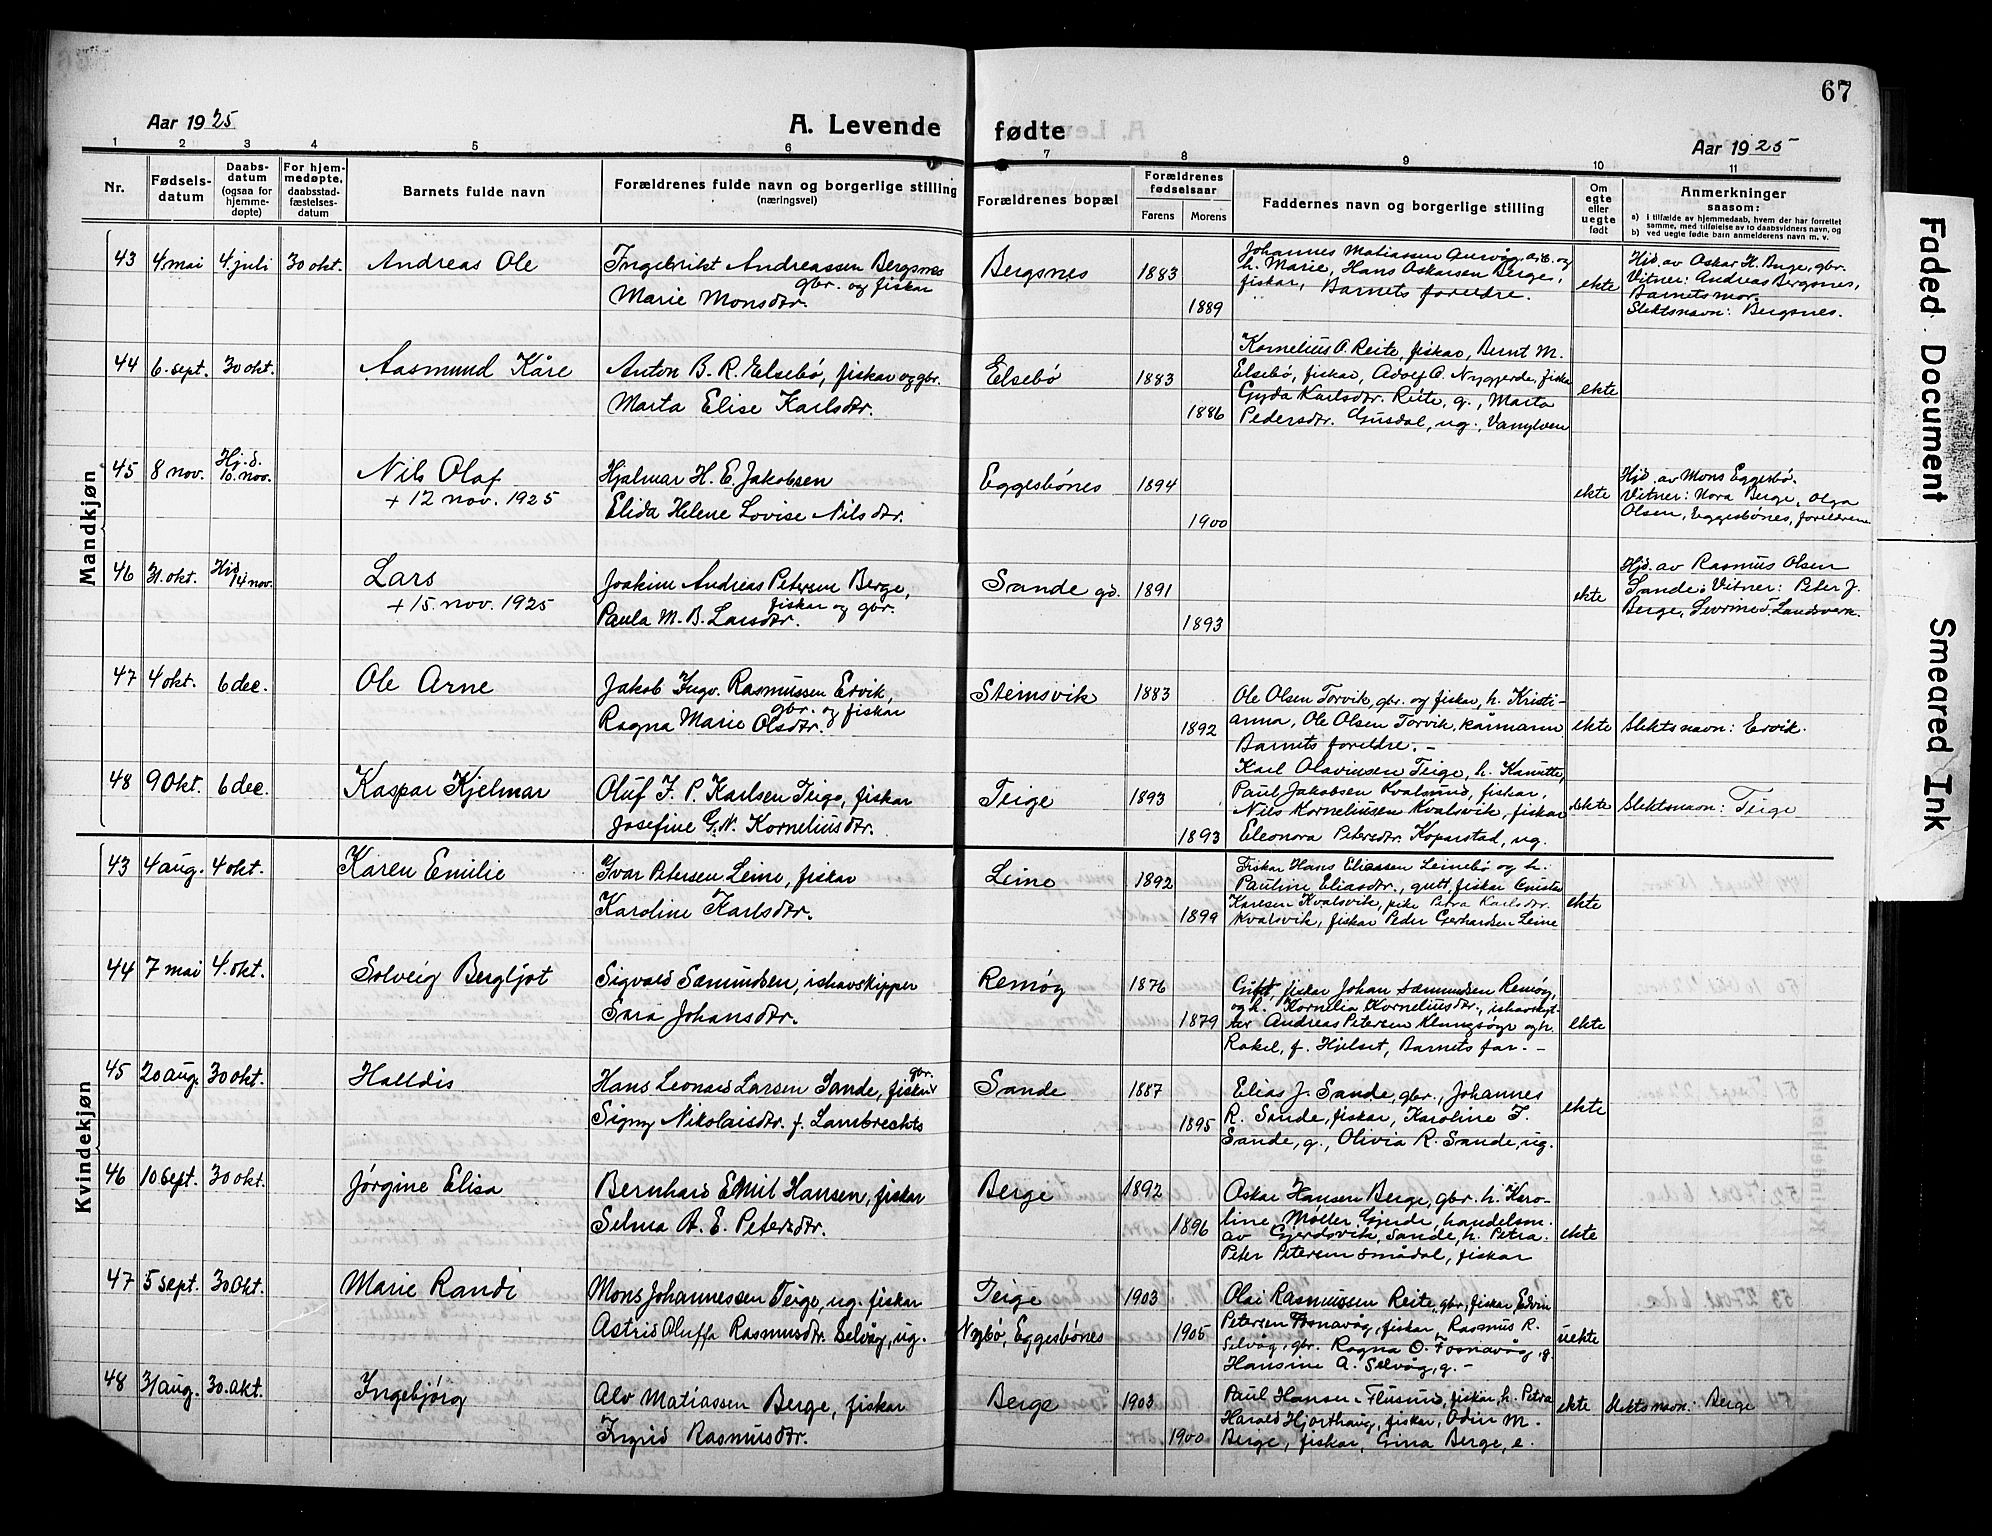 67
Aar 1925
A. Levende
fødte
Aar 1925
1 2 3 4 5 6 7 8 9 10 11
Nr.
Fødsels-
datum
Daabs-
datum
(ogsaa for
hjemme-
døpte)
For hjem-
medøpte,
daabsstad-
fæstelses-
datum
Barnets fulde navn
Forældrenes fulde navn og borgerlige stilling
(næringsvei)
Forældrenes bopæl
Forældrenes
fødselsaar
Farens Morens
Faddernes navn og borgerlige stilling
Om
egte
eller
uegte
født
Anmerkninger
saasom:
a) i tilfælde av hjemmedaab, hvem der har forrettet
samme, med tilføielse av to daabsvidners navn, og
b) ved uegte fødte barn anmelderens navn m. v.
Mandkjøn
43 4 mai 4. juli 30 okt. Andreas Ole
Ingebrikt Andreassen Bergsnes
gbr. og fiskar
Marie Monsdtr.
Bergsnes 1883
1889
Johannes Matiassen
h. Marie, Hans Oskarsen Berge,
fiskar, Barnets foreldre.
ekte
Hjd. av Oskar H. Berge, gbr.
Vitner: Andreas Bergsnes,
Barnets mor.
Slektsnavn: Bergsnes.
44 6. sept. 30 okt. Aasmund Kåre
Anton B. R. Elsebø, fiskar og gbr.
Marta Elise Karlsdtr.
Elsebø 1883
1886
Kornelius A. Reite, fiskar, Bernt M.
Elsebø, fiskar, Adolf A. Nygjerde, fiskar
Gyda Karlsdtr. Reite, g., Marta
Pedersdtr. Gusdal, ug., Vanylven
ekte
45 8 nov. Hj.d.
16. nov. Nils Olaf
+ 12 nov. 1925
Hjalmar H. E. Jakobsen
Elida Helene Lovise Nilsdtr.
Eggesbönes 1894
1900
ekte
Hjd. av Mons Eggesbø.
Vitner: Nora Berge, Olga
Olsen, Eggesbönes, foreldrene
46 31. okt. Hjd.
14 nov. Lars
+ 15 nov. 1925
Joakim Andreas Petersen Berge,
fiskar og gbr.
Paula M. B. Larsdtr.
Sande gd. 1891
1893
ekte
Hjd. av Rasmus Olsen
Sande. Vitner: Peter J.
Berge, Landsverk.
47 4 okt. 6 dec. Ole Arne
Jakob Ingv. Rasmussen Ervik,
gbr. og fiskar
Ragna Marie Olsdtr.
Steinsvik 1883
1892
Ole Olsen Torvik, gbr. og fiskar, h. Kristi-
anna, Ole Olsen Torvik, kårmann
Barnets foreldre. -
ekte
Slektsnavn: Ervik.
48 9 Okt. 6 dec. Kaspar Kjelmar
Oluf J. P. Karlsen Teige, fiskar
Josefine G. N. Korneliusdtr.
Teige 1893
1893
Karl Olavinsen Teige, h. Kanutte,
Paul Jakobsen Kvalsund, fiskar,
Nils Korneliussen Kvalsvik, fiskar
Eleonora Petersdtr. Koparstad, ug.
ekte
Slektsnavn: Teige
Kvindekjøn
43 4 aug. 4 okt. Karen Emilie
Ivar Petersen Leine, fiskar
Karoline Karlsdtr.
Leine 1892
1899
Fiskar Hans Eliassen Leinebø og h.
Pauline Eliasdtr., gutt, fiskar
Karlsen Kvalsvik, pike Petra Karlsdtr.
Kvalsvik, fiskar Peder Gerhardsen Leine
ekte
44 7 mai 4. okt. Solveig Bergljot
Sigvald Sæmundsen, ishavskipper
Sara Johansdtr.
Remøy 1876
1879
Gift, fiskar Johan Sæmundsen Remøy,
og h. Kornelia Korneliusdtr., ishavskyt-
ter Andreas Petersen Klungsøyr og h.
Rakel, f. Hjelset, Barnets far. -
ekte
45 20 aug. 30 okt. Halldis
Hans Leonard Larsen Sande, fiskar
gbr.
Signy Nikolaisdtr. f. Lambrechts
Sande 1887
1895
Elias J. Sande, gbr., Johannes
R. Sande, fiskar, Karoline J.
Sande, g., Olivia R. Sande, ug.
ekte
46 10 sept. 30 okt. Jörgine Elisa
Bernhard Emil Hansen, fiskar
Selma A. E. Petersdtr.
Berge 1892
1896
Oskar Hansen Berge, gbr. h. Karo-
line, Møller Gjerde, handelsm.
av Gjerdsvik, Sande, h. Petra.
Peter Petersen Smådal, fiskar
ekte
47 5 sept. 30 Okt. Marie Randi
Mons Johannessen Teige, ug. fiskar
Astrid Oluffa Rasmusdtr. Selvåg, ug.
Teige 1903
Nybø, Eggesbönes 1905
Olai Rasmussen Reite, gbr, fiskar, Edvin
Petersen Fosnavåg, fiskar, Rasmus R.
Selvåg, gbr. Ragna O. Fosnavåg, g.
Hansine A. Selvåg, g. -
uekte
48 31 aug. 30. okt. Ingebjørg
Alv Matiassen Berge, fiskar
Ingrid Rasmusdtr.
Berge 1903
1900
Paul Hansen Flusund, fiskar, h. Petra
Harald Hjorthaug, fiskar, Odin M.
Berge, fiskar, Gina Berge, e.
ekte
Slektsnavn: Berge
Faded Document
Smeared Ink